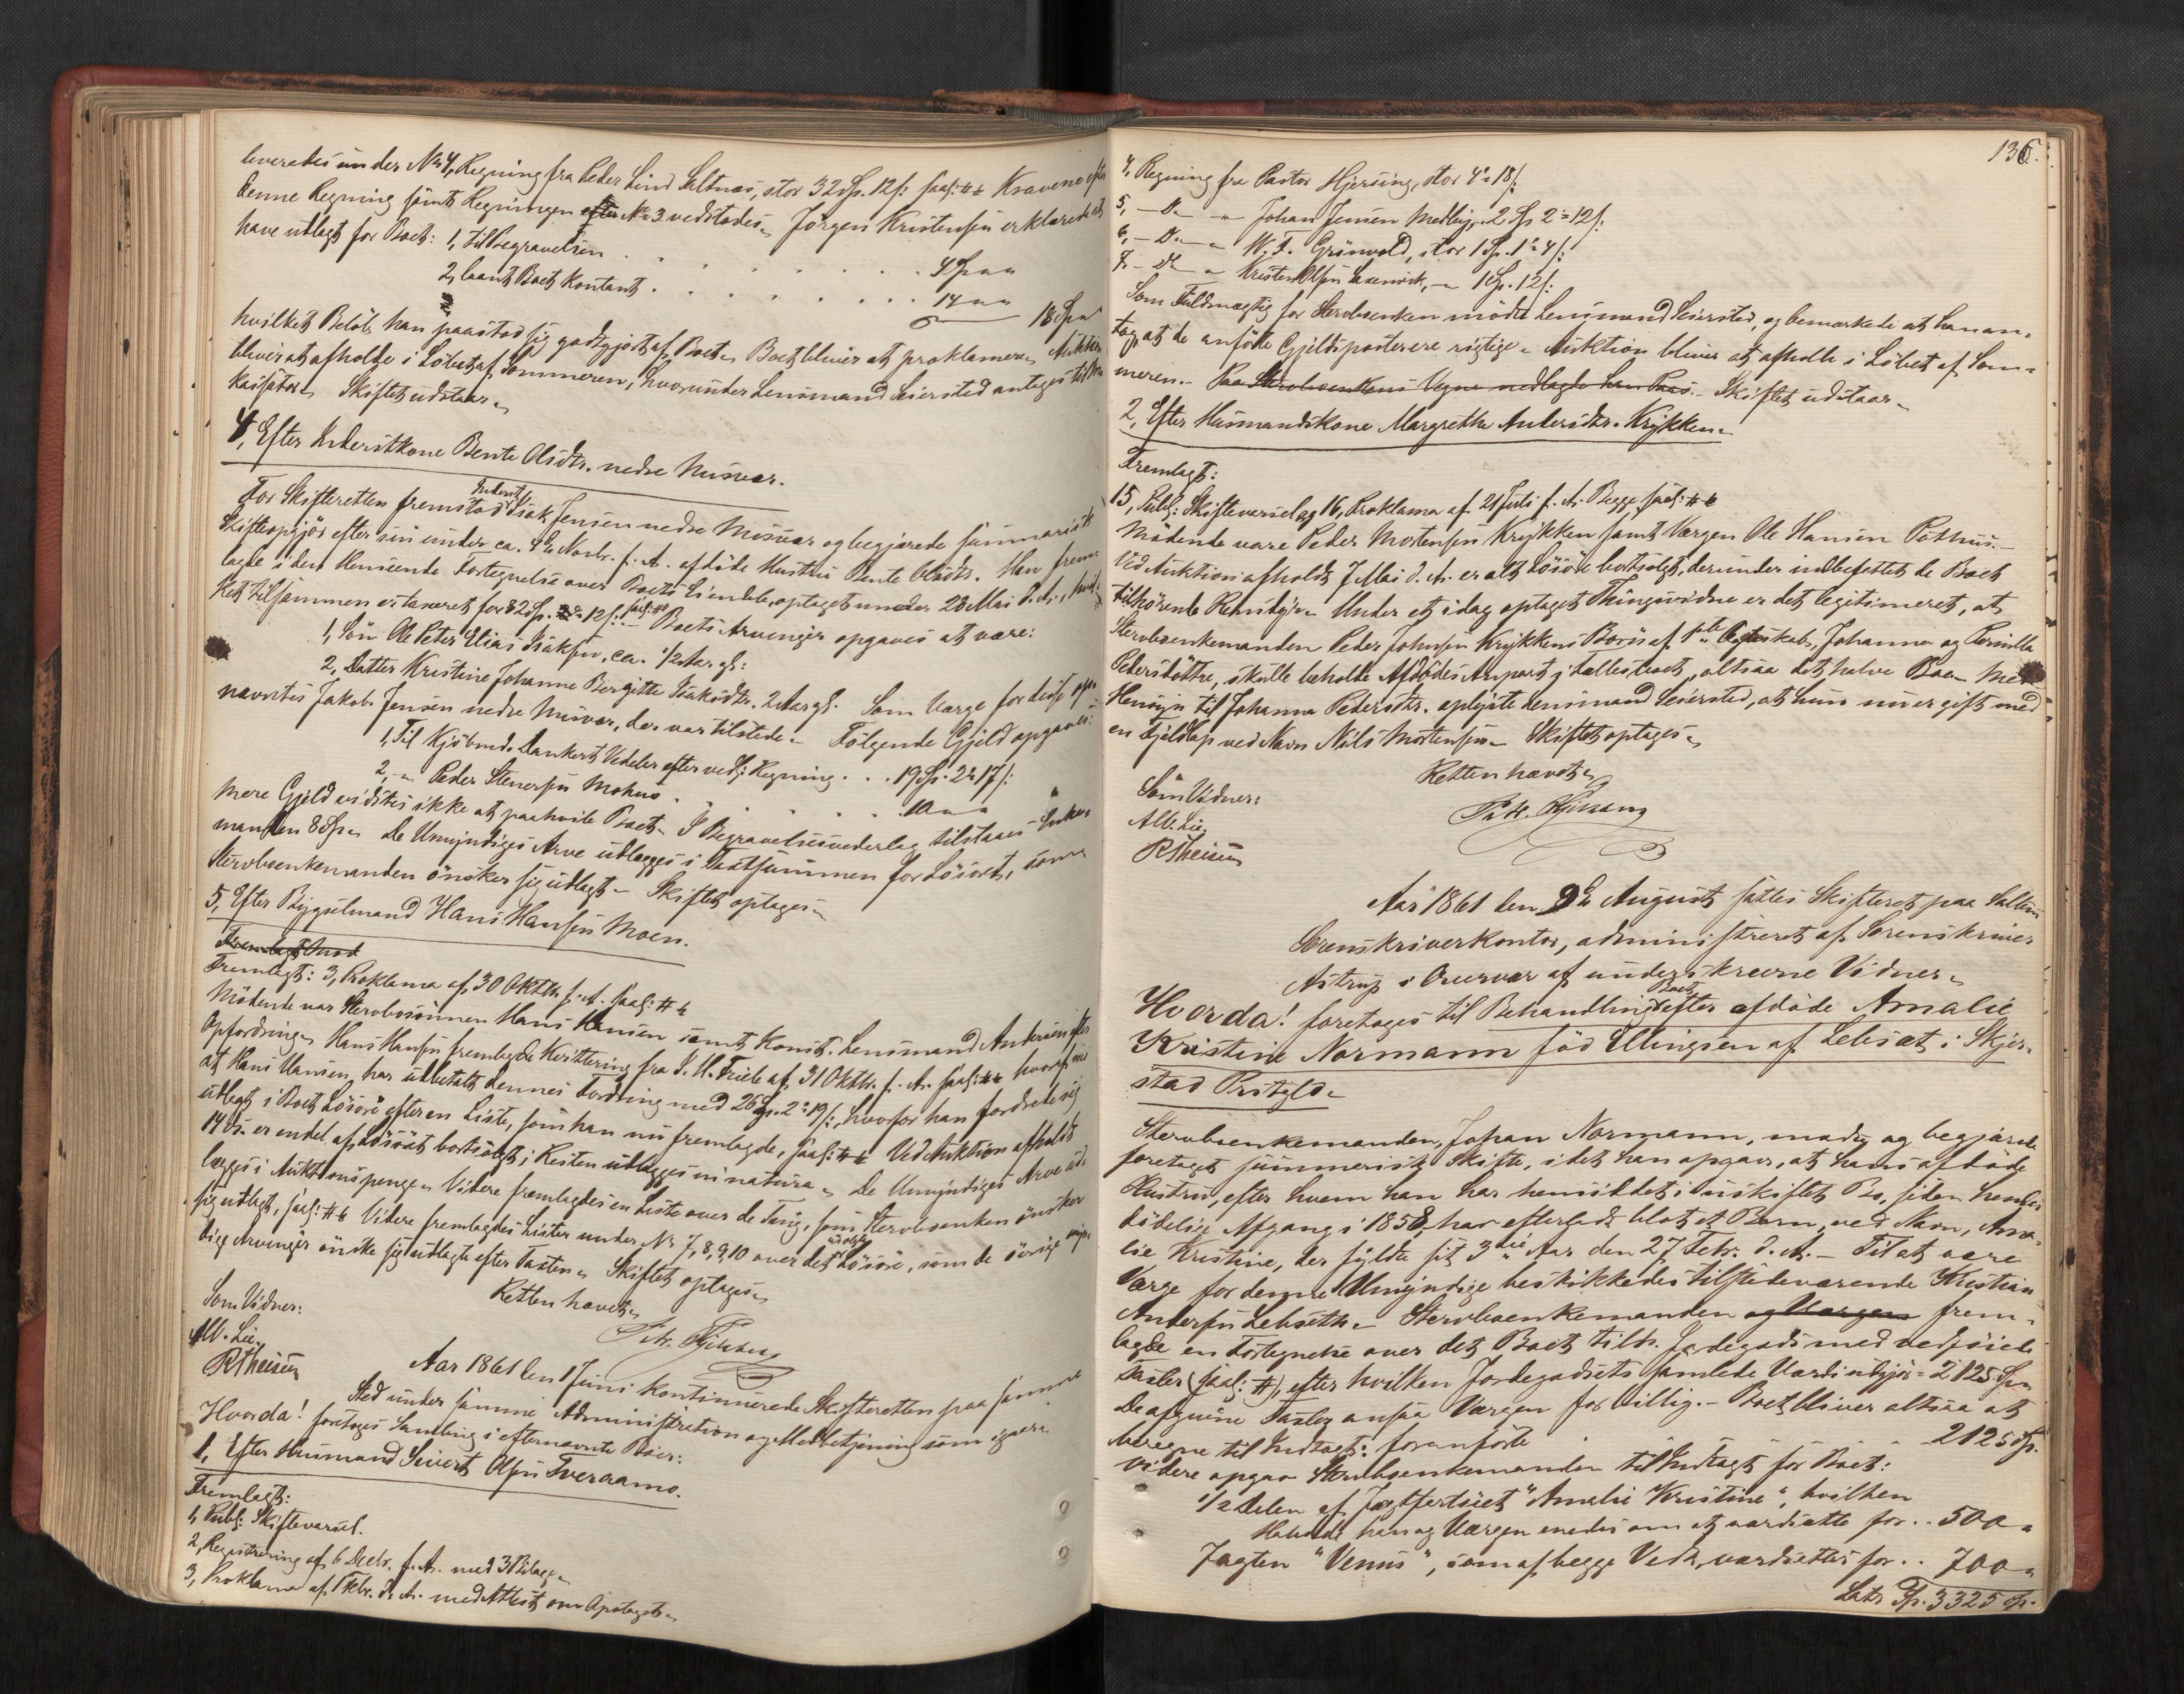 leveredes under No 4, Regning fra Peder Lind Saltnæs, stor 32 Sp. 12 s: saal: Kravene efter
denne Regning samt Regningen efter No 3 vedstodes. Jørgen Kristensen erklærede at
have udlagt for Boet: 1, til Begravelsen . . . . . . . 4 Sp " "
2, laant Boet kontant . . . . . . . 14 " "
18 Sp "
hvilket Beløb han paastod sig godtgjort af Boet. Boet bliver at proklamere. Auktion
bliver at afholde i Løbet af Sommeren, hvorunder Lensmand Seiersted antages til In-
kassator. Skiftet udstaar.
4, Efter Inderstkone Bente Olsdtr. nedre Nusvær.
For Skifteretten fremstod Inderst Isak Jensen nedre Misvær og begjærede summarisk
Skifteopgjør efter sin under ca. 4de Novbr. f. A. afdøde Hustru Bente Olsdtr. Han frem-
lagde i den Henseende Fortegnelse over Boets Eiendele, optaget under 28 Mai d. A., hvil-
ket tilsammen er taxeret for 82 Sp. 12 s: Boets Arvinger opgaves at være:
1, Søn Ole Peter Elias Isaksen, ca. 1/2 Aar gl:
2, Datter Kristine Johanne Bergitte Isaksdtr. 2 Aar gl. Som Værge for disse op-
nævntes Jakob Jensen nedre Misvær, der var tilstede. Følgende Gjeld opgaves:
1, Til Kjøbmd. Dankert Vedeler efter vedl: Regning . . . 19 Sp. 2 " 17 s:
2, - " Peder Stenersen Mohus . . . . . 10 " "
Mere Gjeld vidstes ikke at paahvile Boet. I Begravelsesvederlag tilstaaes Enke-
manden 8 Sp. De Umyndiges Arve udlægges i Taxtsummen for Løsøret, som
Stervboenkemanden ønsker sig udlagt. Skiftet optages.
5, Efter Bygselmand Hans Hansen Moen.
Fremlagt: 3, Proklama af 30 Oktbr. f. A. saal:
Mødende var Stervbosønnen Hans Hansen samt Konst. Lensmand Andersen efter
Opfordring. Hans Hansen fremlagde Kvittering fra J. H. Friele af 31 Oktbr. f. A. saal: hvoraf sees
at Hans Hansen har udbetalt dennes Fordring med 26 Sp. 2 " 19 s:, hvorfor han fordrede sig
udlagt i Boets Løsøre efter en Liste, som han nu fremlagde, saal: Ved Auktion afholdt
14 ds. er endel af Løsøret bortsolgt; Resten udlægges in natura. De Umyndiges Arve ud-
lægges i Auktionspenge. Videre fremlagdes en Liste over de Ting, som Stervboenken ønsker
sig udlagt, saal: Videre fremlagdes Lister under No 7, 8, 9, 10 over det usolgte Løsøre, som de øvrige myn-
dige Arvinger ønske sig udlagte efter Taxten. Skiftet optages.
Retten hævet.
Som Vidner:
Alb. Lie.
R Theisen
Aar 1861 den 1 Juni kontinuerede Skifteretten paa samme
Sted under samme Administration og Medbetjening som igaar.
Hvorda! foretoges Samling i efternævnte Boer:
1, Efter Husmand Sivert Olsen Tveraamo.
Fremlagt:
1, Publ: Skiftevarsel.
2, Registrering af 6 Decbr. f. A. med 3 Bilage.
3, Proklama af 1 Febr. d. A. med Attest om Opslaget.
136.
4, Regning fra Pastor Hjersing, stor 4 " 18 s:
5, - Do - " Johan Jensen Medby, 2 Sp 2 " 12 s:
6, - Do - " W. F. Grönvold, stor 1 Sp. 1 " 4 s:
7, - Do - " Kristen Olsen Laxenvik, - 1 Sp. 12 s:
Som Fuldmægtig for Stervboenken mødte Lensmand Seiersted, og bemærkede at han an-
tog, at de anførte Gjeldsposter ere rigtige. Auktion bliver at afholde i Løbet af Som-
meren. Paa Stervboenkens Vegne nedlagde han Paas. Skiftet udstaar.
2, Efter Husmandskone Margrethe Andersdtr. Krykken.
Fremlagt:
15, Publ: Skiftevarsel og 16, Proklama af 21 Juli f. A. Begge saal:
Mødende vare Peder Mortensen Krykken samt Værgen Ole Hansen Pothus.
Ved Auktion afholdt 7 Mai d. A. er alt Løsøre bortsolgt, derunder indbefattet de Boet
tilhørende Rensdyr. Under et idag optaget Thingsvidne er det legitimeret, at
Stervboenkemanden Peder Johnsen Krykkens Børn af 1ste Ægteskab, Johanna og Pernilla
Pedersdøttre, skulle beholde Afdødes Anpart i Fællesboet, altsaa det halve Boe. Med
Hensyn til Johanna Pedersdtr. oplyste Lensmand Seiersted, at hun nu er gift med
en Fjeldlap ved Navn Nils Mortensen. Skiftet optages.
Retten hævet.
Som Vidner:
Alb. Lie
R Theisen
Aar 1861 den 9de August sattes Skifteret paa Saltens
Sorenskriverkontor, administreret af Sorenskriver
Astrup i Overvær af underskrevne Vidner.
Hvorda! foretoges til Behandling Boet efter afdøde Amalie
Kristine Normann fød Ellingsen af Lebsæt i Skjer-
stad Præstgld.
Stervboenkemanden, Johan Normann, mødte og begjærede
foretaget summarisk Skifte, idet han opgav, at hans afdøde
Hustru, efter hvem han har hensiddet i uskiftet Bo, siden hendes
dødelige Afgang i 1858, har efterladt blot et Barn, ved Navn, Ama-
lie Kristine, der fyldte sit 3die Aar den 27 Febr. d. A. - Til at være
Værge for denne Umyndige beskikkedes tilstedeværende Kristian
Andersen Lebsæth. Stervboenkemanden og Værgen frem-
lagde en Fortegnelse over det Boet tilh. Jordegods med vedføiede
Taxter (saal:), efter hvilken Jordegodsets samlede Værdi udgjør 2125 Sp.
De afgivne Taxter ansaa Værgen for billig. - Boet bliver altsaa at
beregne til Indtægt: foranførte . . . 2125 Sp.
Videre opgav Stervboenkemanden til Indtægt for Boet:
1/2 Delen af Jagtfartøiet "Amalie Kristine", hvilken
Halvdel han og Værgen enedes om at værdsætte for . . 500 "
Jagten "Venus", som af begge Vedk. værdsættes for . . 700 "
Lats Sp. 3325 Sp.